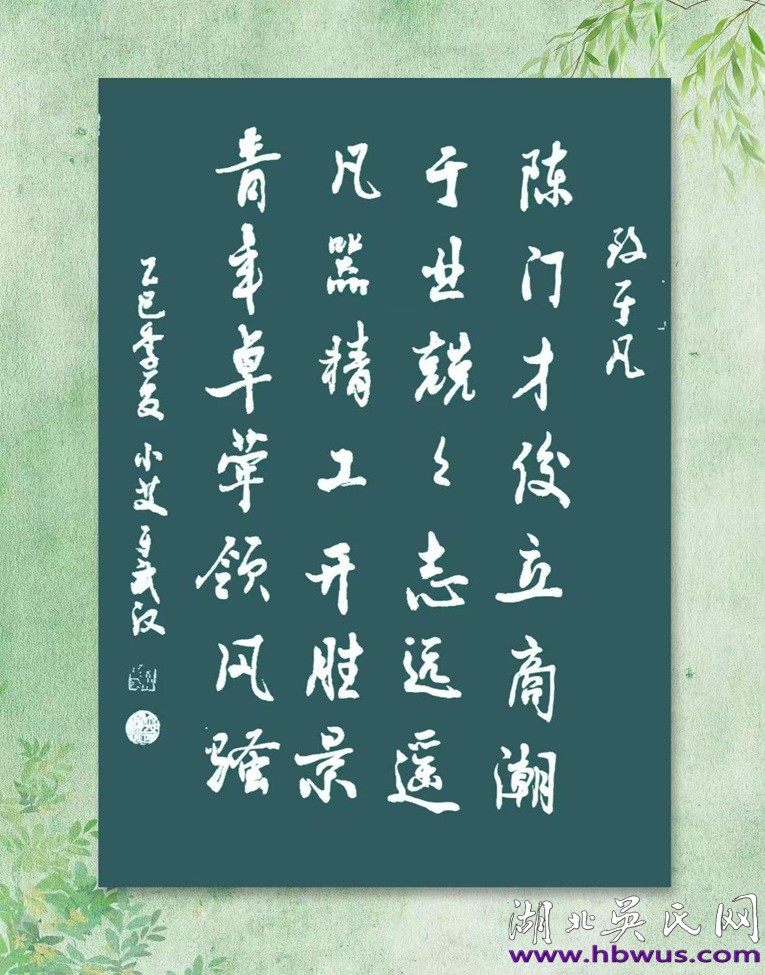 致于凡
陈门才俊立商潮
于业兢々志远遥
凡器精工开胜景
青年卓荦领风骚
乙巳季夏 小艾于武汉
湖北吳氏网
www.hbwus.com